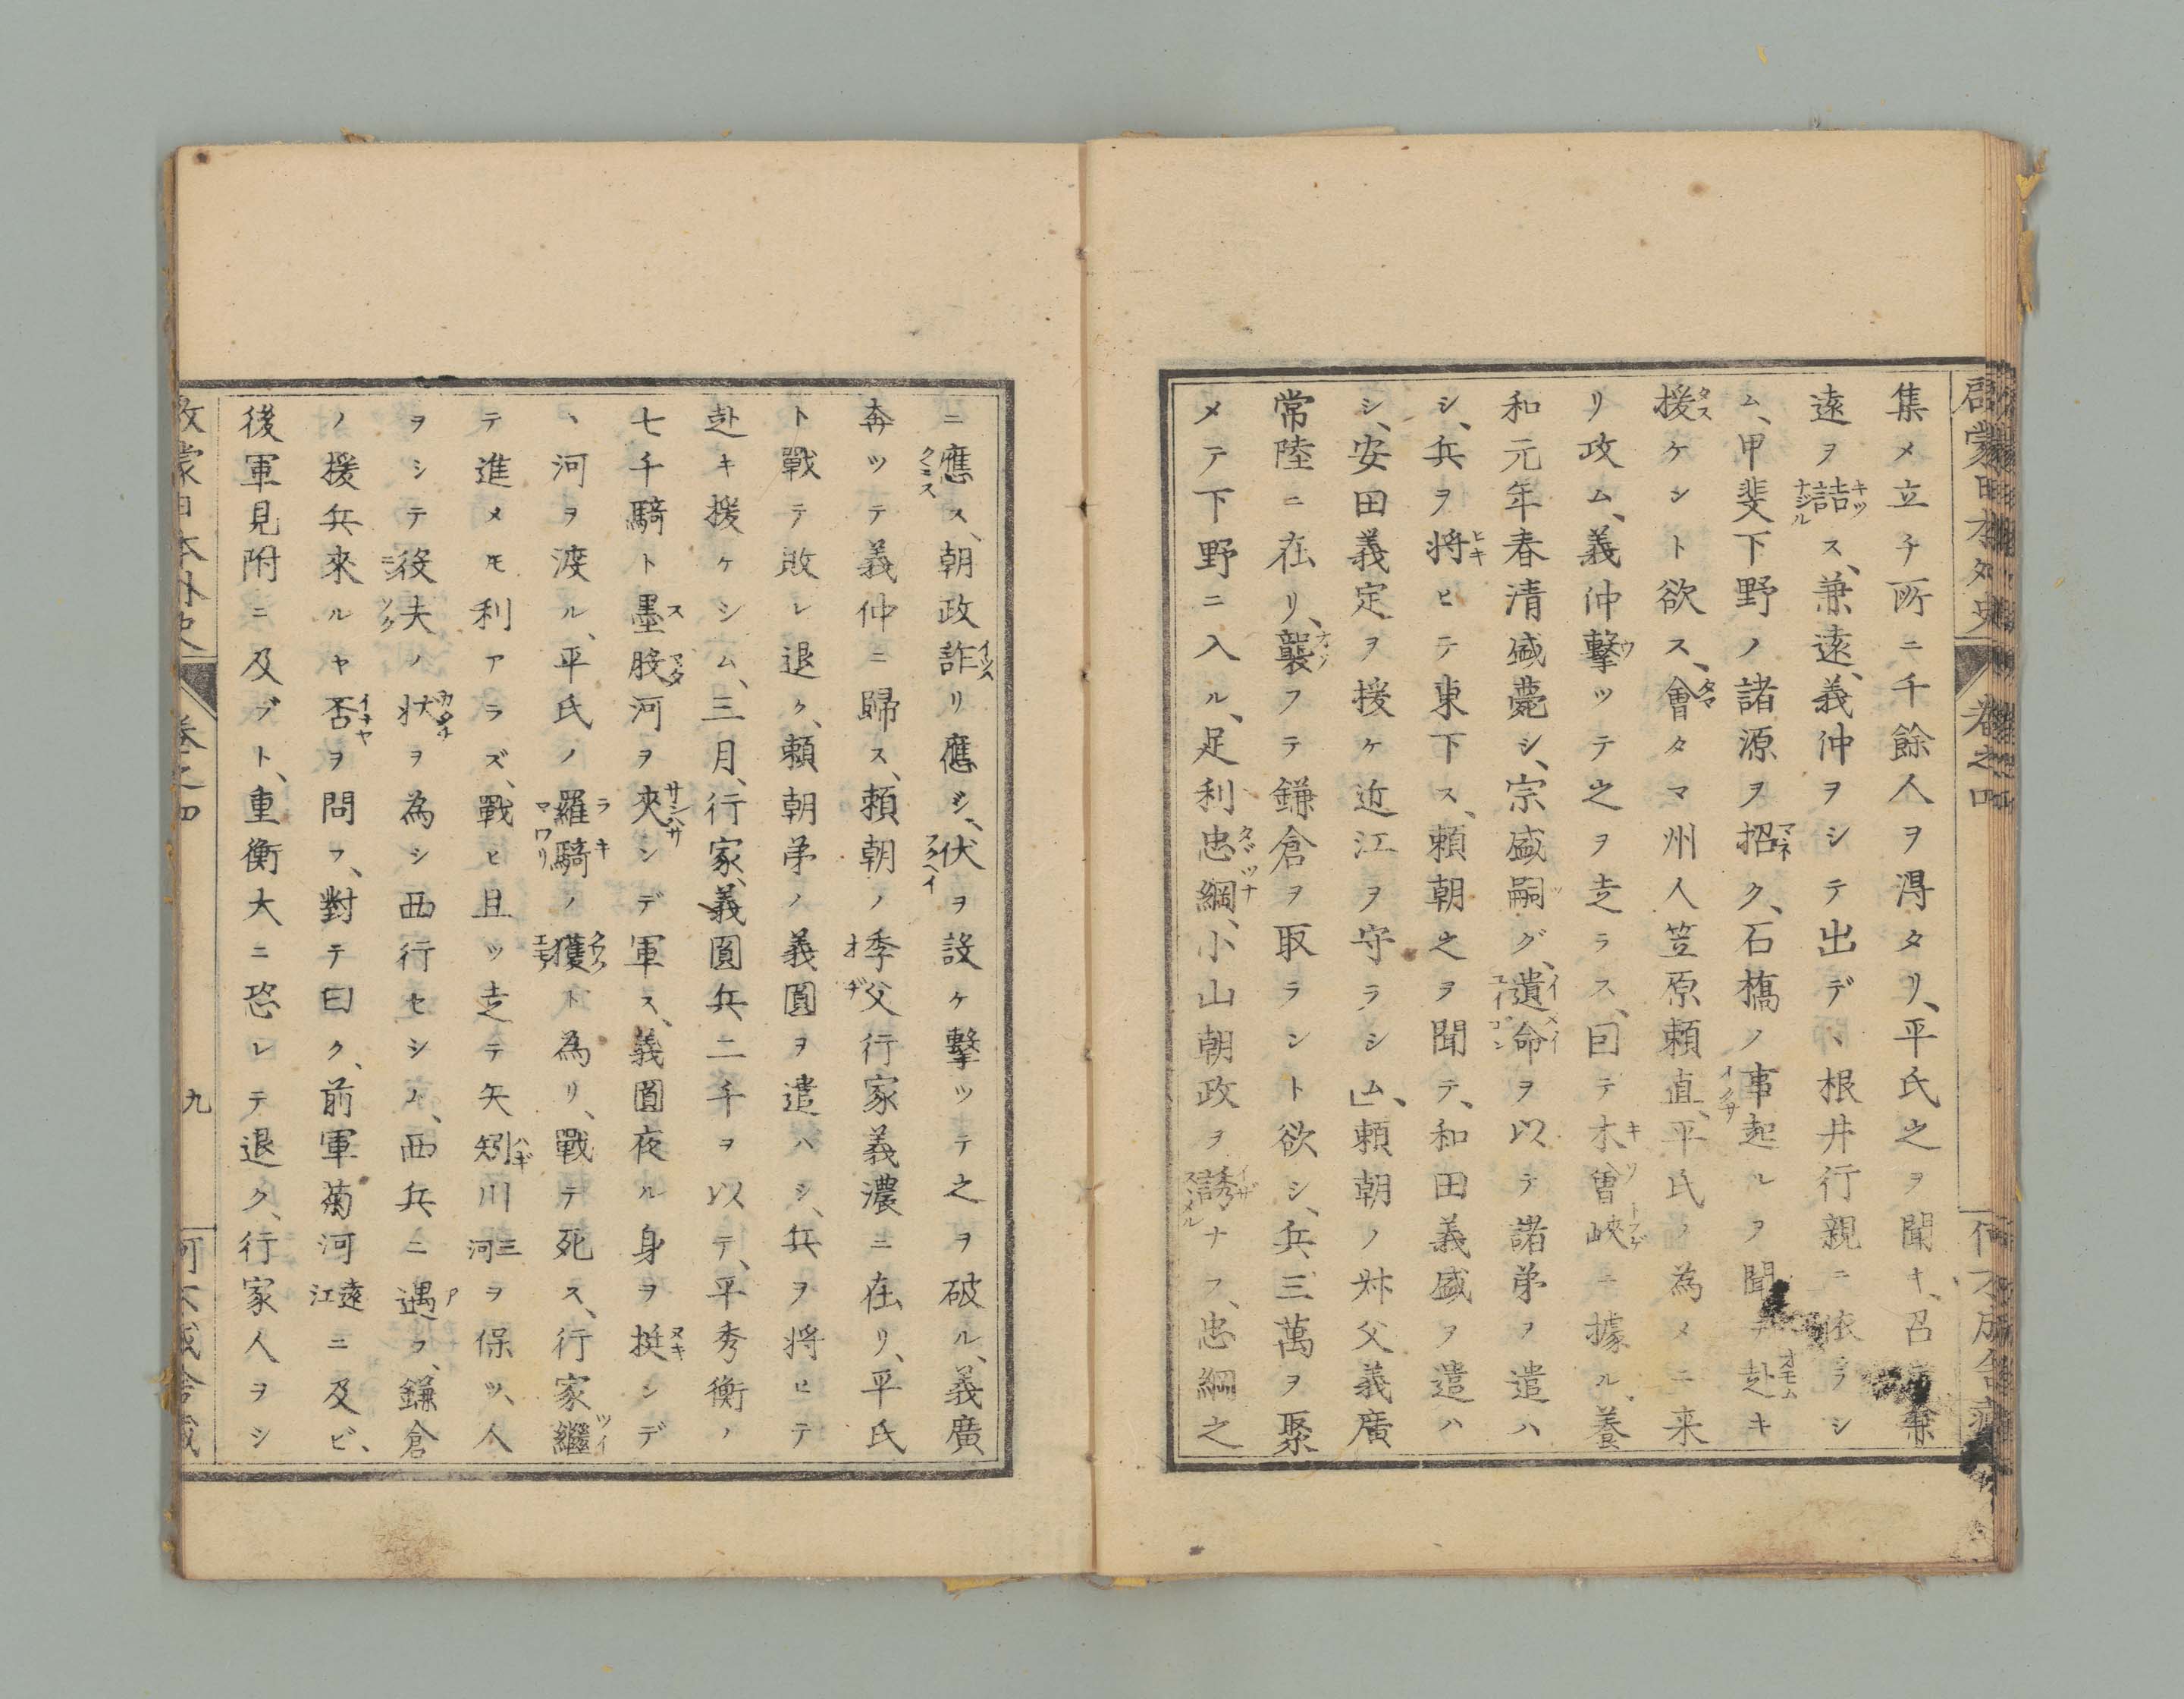 集メ立チ所ニ千餘人ヲ淂タリ、平氏之ヲ聞キ、召兼
遠ヲ詰ス、兼遠、義仲ヲシテ出デ、根井行親ニ依ラシ
ム、甲斐下野ノ諸源ヲ招ク、石橋ノ事起ルヲ聞テ赴キ
援ケシト欲ス、會タマ州人笠原頼直、平氏ノ為メニ来
リ政ム、義仲撃ツテ之ヲ走ラス、囙テ木曽峽ニ據ル、養
和元年春清盛薨シ、宗盛嗣グ、遺命ヲ以テ諸弟ヲ遣ハ
シ、兵ヲ将ヒテ東下ス、頼朝之ヲ聞テ、和田義盛ヲ遣ハ
シ、安田義定ヲ援ケ近江ヲ守ラシム、」頼朝ノ叔父義廣
常陸ニ在リ、襲フテ鎌倉ヲ取ラント欲シ、兵三萬ヲ聚
メテ下野ニ入ル、足利忠綱、小山朝政ヲ誘ナフ、忠綱之
ニ應ス、朝政詐リ應ジ、伏ヲ設ケ撃ツテ之ヲ破ル、義廣
奔ツテ義仲ニ歸ス、頼朝ノ季父行家義濃ニ在リ、平氏
ト戰テ敗レ退ク、頼朝弟ノ義圓ヲ遣ハシ、兵ヲ将ヒテ
赴キ援ケシム、三月、行家、義圓兵二千ヲ以テ、平秀衡ノ
七千騎ト墨股河ヲ夾ンデ軍ス、義圓夜ル身ヲ挺ンデ
丶河ヲ渡ル、平氏ノ羅騎ノ獲ト為リ、戰テ死ス、行家繼
テ進メモ利アラズ、戰ヒ且ツ走テ矢矧川三河ヲ保ツ、人
ヲシテ役夫ノ状ヲ為シ西行セシム、西兵ニ遇フ、鎌倉
ノ援兵來ルヤ否ヲ問フ、對テ曰ク、前軍菊河遠江ニ及ビ、
後軍見附ニ及ブト、重衡大ニ恐レテ退ク、行家人ヲシ
啓蒙日本外史 卷之四
啓蒙日本外史 卷之四 九